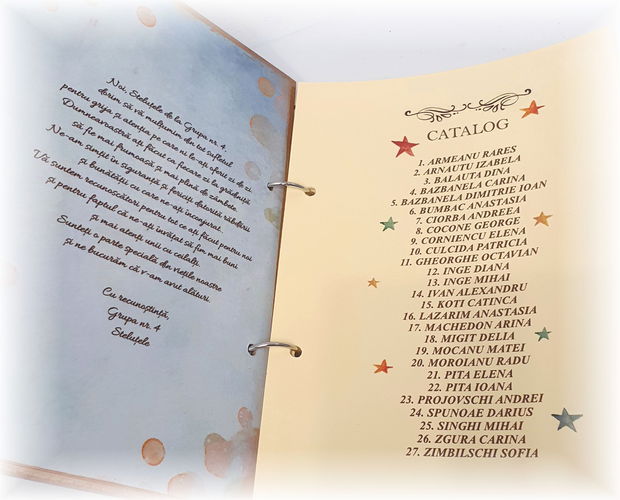 Noi, Steluțele de la Grupa nr. 4,
dorim să vă mulțumim din tot sufletul
pentru grija și atenția pe care ni le-ați oferit zi de zi.
Dumneavoastră ați făcut ca fiecare zi la grădiniță
să fie mai frumoasă și mai plină de zâmbete.
Ne-am simțit în siguranță și fericiți datorită răbdării
și bunătății cu care ne-ați înconjurat.
Vă suntem recunoscători pentru tot ce ați făcut pentru noi
și pentru faptul că ne-ați învățat să fim mai buni
și mai atenți unii cu ceilalți.
Sunteți o parte specială din viețile noastre
și ne bucurăm că v-am avut alături.
Cu recunoștință,
Grupa nr. 4
Steluțele
CATALOG
1. ARMEANU RARES
2. ARNAUTU IZABELA
3. BALAUTA DINA
4. BAZBANELA CARINA
5. BAZBANELA DIMITRIE IOAN
6. BUMBAC ANASTASIA
7. CIORBA ANDREEA
8. COCONE GEORGE
9. CORNIENCU ELENA
10. CULCIDA PATRICIA
11. GHEORGHE OCTAVIAN
12. INGE DIANA
13. INGE MIHAI
14. IVAN ALEXANDRU
15. KOTI CATINCA
16. LAZARIM ANASTASIA
17. MACHEDON ARINA
18. MIGIT DELIA
19. MOCANU MATEI
20. MOROIANU RADU
21. PITA ELENA
22. PITA IOANA
23. PROJOVSCHI ANDREI
24. SPUNOAE DARIUS
25. SINGHI MIHAI
26. ZGURA CARINA
27. ZIMBILSCHI SOFIA